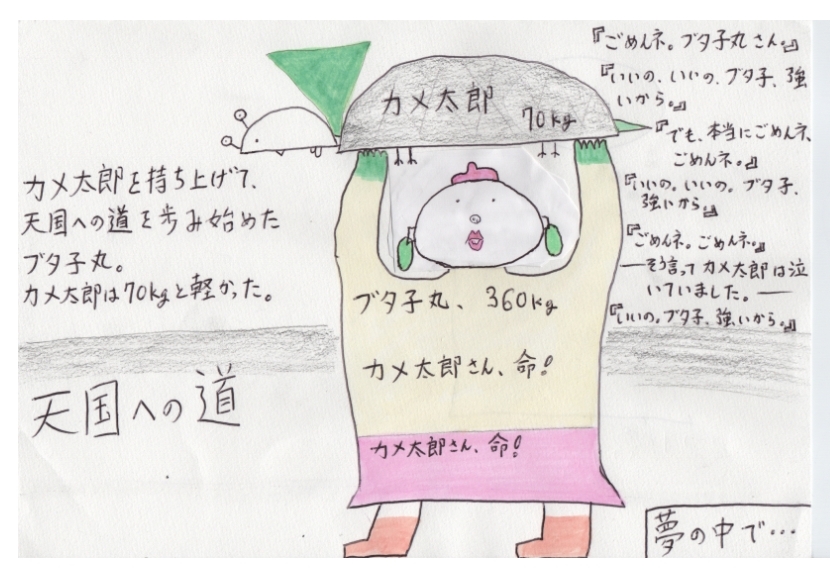 カメ太郎を持ち上げて、
天国への道を歩み始めた
ブタ子丸。
カメ太郎は70kgと軽かった。
天国への道
カメ太郎
70kg
ブタ子丸、360kg
カメ太郎さん、命!
カメ太郎さん、命!
『ごめんネ。ブタ子丸さん。』
『いいの、いいの、ブタ子、強
いから。』
『でも、本当にごめんネ、
ごめんネ。』
『いいの。いいの。ブタ子、
強いから。』
『ごめんネ。ごめんネ。』
―そう言ってカメ太郎は泣
いていました。―
『いいの。ブタ子、強いから。』
夢の中で…